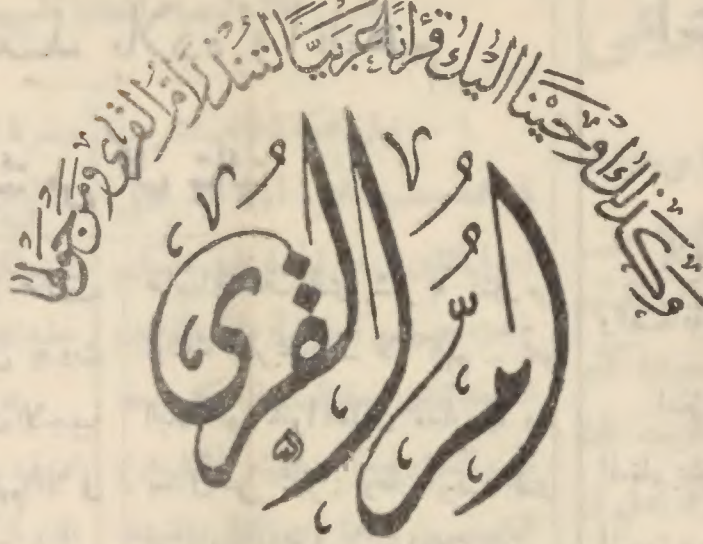 وكذلك أوحينا إليك قرآنا عربيّا لتنذر أمّ القرى ومن حولها
امّ القرى